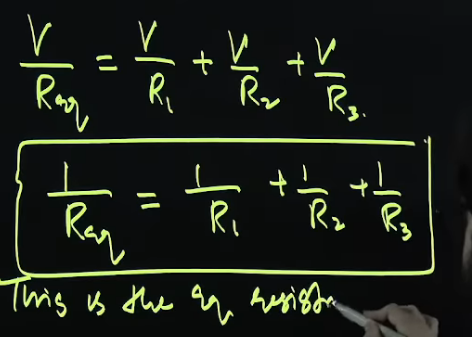 V/Req = V/R1 + V/R2 + V/R3.
1/Req = 1/R1 + 1/R2 + 1/R3
This is the eq resist